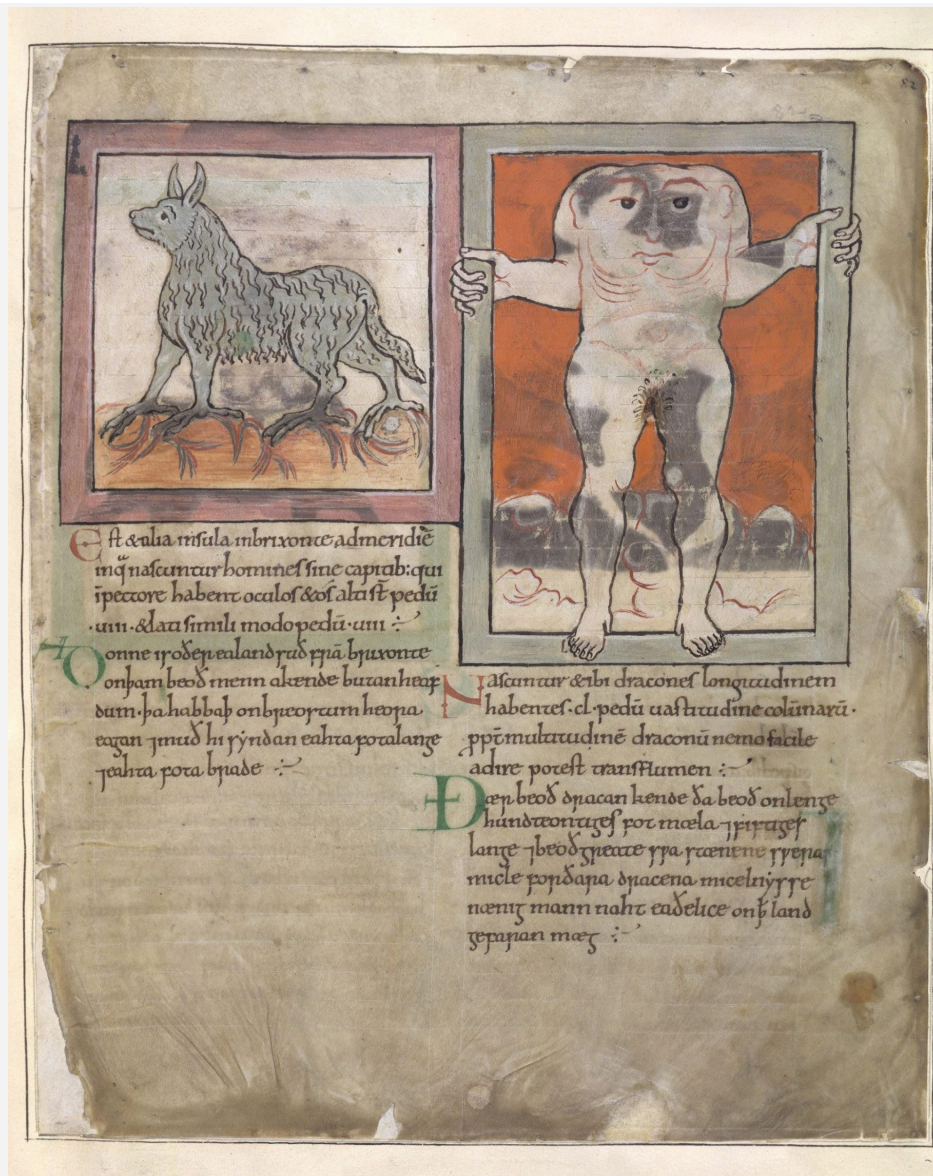 Est & alia insula in brixonte ad meridiē
in q̄ nascuntur homines sine capitib: qui
ī pectore habent oculos & os alti st̄ pedū
·uiii· & lati simili modo pedū·uiii·
Ðonne is oðer ealand suð frā brixonte
on þam beoð menn akende butan heaf
dum· þa habbaþ on breostum heora
eagan ⁊ muð hi syndan eahta fota lange
⁊ eahta fota brade
Nascuntur & ibi dracones longitudinem
habentes·cl·pedū uastitudine colūnarū·
ꝓpt̄ multitudinē draconū nemo facile
adire potest trans flumen
Ðær beoð dracan kende ða beoð on lenge
hundteontiges fot mæla ⁊ fiftiges
lange ⁊ beoð greate swa stænene sweras
micle for ðara dracena micelnysse
nænig mann naht eaðelice on ꝥ land
gefaran mæg